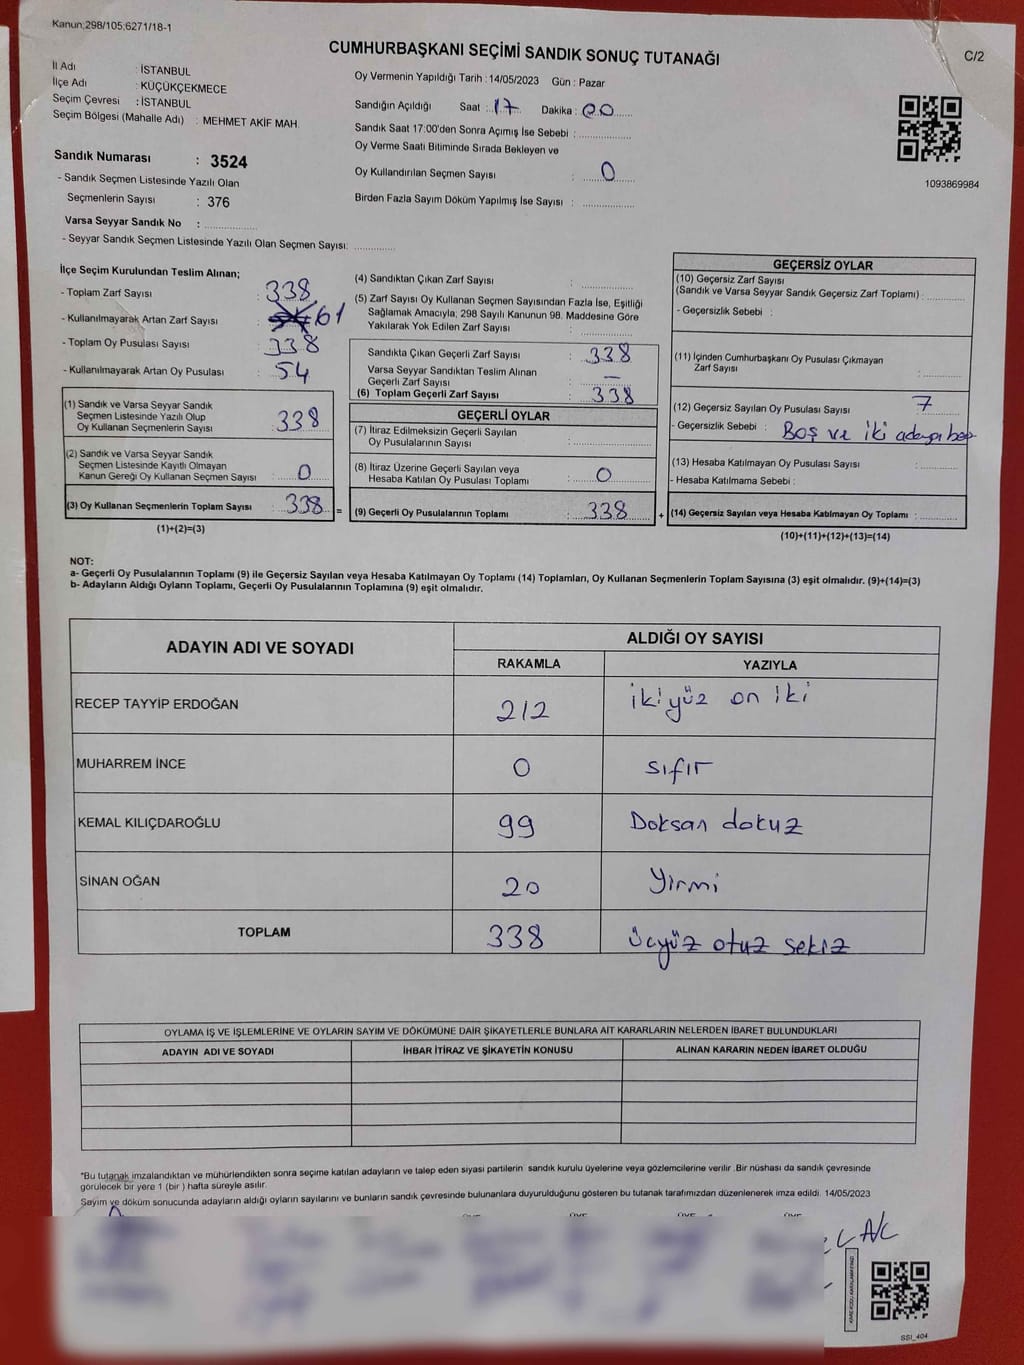 Kanun;298/105;6271/18-1
CUMHURBAŞKANI SEÇİMİ SANDIK SONUÇ TUTANAĞI
C/2
İl Adı : İSTANBUL
İlçe Adı : KÜÇÜKÇEKMECE
Seçim Çevresi : İSTANBUL
Seçim Bölgesi (Mahalle Adı) : MEHMET AKİF MAH.
Sandık Numarası : 3524
- Sandık Seçmen Listesinde Yazılı Olan
Seçmenlerin Sayısı : 376
Varsa Seyyar Sandık No :
- Seyyar Sandık Seçmen Listesinde Yazılı Olan Seçmen Sayısı:
Oy Vermenin Yapıldığı Tarih : 14/05/2023 Gün : Pazar
Sandığın Açıldığı Saat : 17 Dakika : 00
Sandık Saat 17:00'den Sonra Açımış İse Sebebi :
Oy Verme Saati Bitiminde Sırada Bekleyen ve
Oy Kullandırılan Seçmen Sayısı : 0
Birden Fazla Sayım Döküm Yapılmış İse Sayısı :
1093869984
İlçe Seçim Kurulundan Teslim Alınan;
- Toplam Zarf Sayısı : 338
- Kullanılmayarak Artan Zarf Sayısı : 61
- Toplam Oy Pusulası Sayısı : 338
- Kullanılmayarak Artan Oy Pusulası : 54
(1) Sandık ve Varsa Seyyar Sandık
Seçmen Listesinde Yazılı Olup
Oy Kullanan Seçmenlerin Sayısı : 338
(2) Sandık ve Varsa Seyyar Sandık
Seçmen Listesinde Kayıtlı Olmayan
Kanun Gereği Oy Kullanan Seçmen Sayısı : 0
(3) Oy Kullanan Seçmenlerin Toplam Sayısı : 338 =
(1)+(2)=(3)
(4) Sandıktan Çıkan Zarf Sayısı :
(5) Zarf Sayısı Oy Kullanan Seçmen Sayısından Fazla İse, Eşitliği
Sağlamak Amacıyla; 298 Sayılı Kanunun 98. Maddesine Göre
Yakılarak Yok Edilen Zarf Sayısı :
Sandıkta Çıkan Geçerli Zarf Sayısı : 338
Varsa Seyyar Sandıktan Teslim Alınan
Geçerli Zarf Sayısı : —
(6) Toplam Geçerli Zarf Sayısı : 338
GEÇERLİ OYLAR
(7) İtiraz Edilmeksizin Geçerli Sayılan
Oy Pusulalarının Sayısı :
(8) İtiraz Üzerine Geçerli Sayılan veya
Hesaba Katılan Oy Pusulası Toplamı : 0
(9) Geçerli Oy Pusulalarının Toplamı : 338 +
GEÇERSİZ OYLAR
(10) Geçersiz Zarf Sayısı
(Sandık ve Varsa Seyyar Sandık Geçersiz Zarf Toplamı) :
- Geçersizlik Sebebi :
(11) İçinden Cumhurbaşkanı Oy Pusulası Çıkmayan
Zarf Sayısı :
(12) Geçersiz Sayılan Oy Pusulası Sayısı : 7
- Geçersizlik Sebebi : Boş ve iki adaya
(13) Hesaba Katılmayan Oy Pusulası Sayısı :
- Hesaba Katılmama Sebebi :
(14) Geçersiz Sayılan veya Hesaba Katılmayan Oy Toplamı :
(10)+(11)+(12)+(13)=(14)
NOT:
a- Geçerli Oy Pusulalarının Toplamı (9) ile Geçersiz Sayılan veya Hesaba Katılmayan Oy Toplamı (14) Toplamları, Oy Kullanan Seçmenlerin Toplam Sayısına (3) eşit olmalıdır. (9)+(14)=(3)
b- Adayların Aldığı Oyların Toplamı, Geçerli Oy Pusulalarının Toplamına (9) eşit olmalıdır.
ADAYIN ADI VE SOYADI
ALDIĞI OY SAYISI
RAKAMLA YAZIYLA
RECEP TAYYİP ERDOĞAN 212 iki yüz on iki
MUHARREM İNCE 0 sıfır
KEMAL KILIÇDAROĞLU 99 Doksan dokuz
SİNAN OĞAN 20 Yirmi
TOPLAM 338 üçyüz otuz sekiz
OYLAMA İŞ VE İŞLEMLERİNE VE OYLARIN SAYIM VE DÖKÜMÜNE DAİR ŞİKAYETLERLE BUNLARA AİT KARARLARIN NELERDEN İBARET BULUNDUKLARI
ADAYIN ADI VE SOYADI İHBAR İTİRAZ VE ŞİKAYETİN KONUSU ALINAN KARARIN NEDEN İBARET OLDUĞU
*Bu tutanak imzalandıktan ve mühürlendikten sonra seçime katılan adayların ve talep eden siyasi partilerin sandık kurulu üyelerine veya gözlemcilerine verilir .Bir nüshası da sandık çevresinde
görülecek bir yere 1 (bir ) hafta süreyle asılır.
Sayım ve döküm sonucunda adayların aldığı oyların sayılarını ve bunların sandık çevresinde bulunanlara duyurulduğunu gösteren bu tutanak tarafımızdan düzenlenerek imza edildi. 14/05/2023
SSI_404